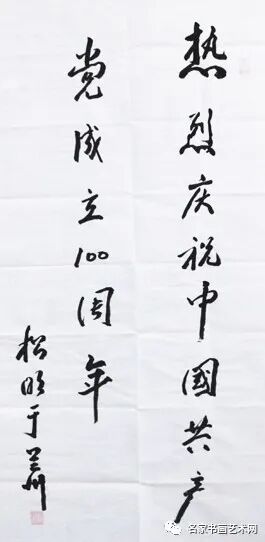 热烈庆祝中国共产
党成立100周年
松明于兰州
名家书画艺术网